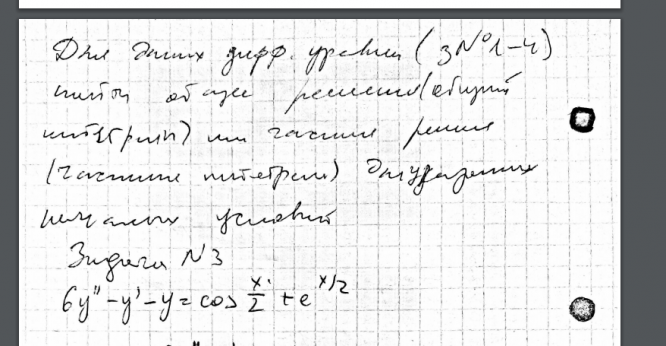 Для данных дифф. уравнен (з№1-4)
найти общее решение (общий
интеграл) или частное решение
(частные интегралы) для указанных
начальных условий
Задача №3
6y'' - y' - y = cos x/2 + e^x/2